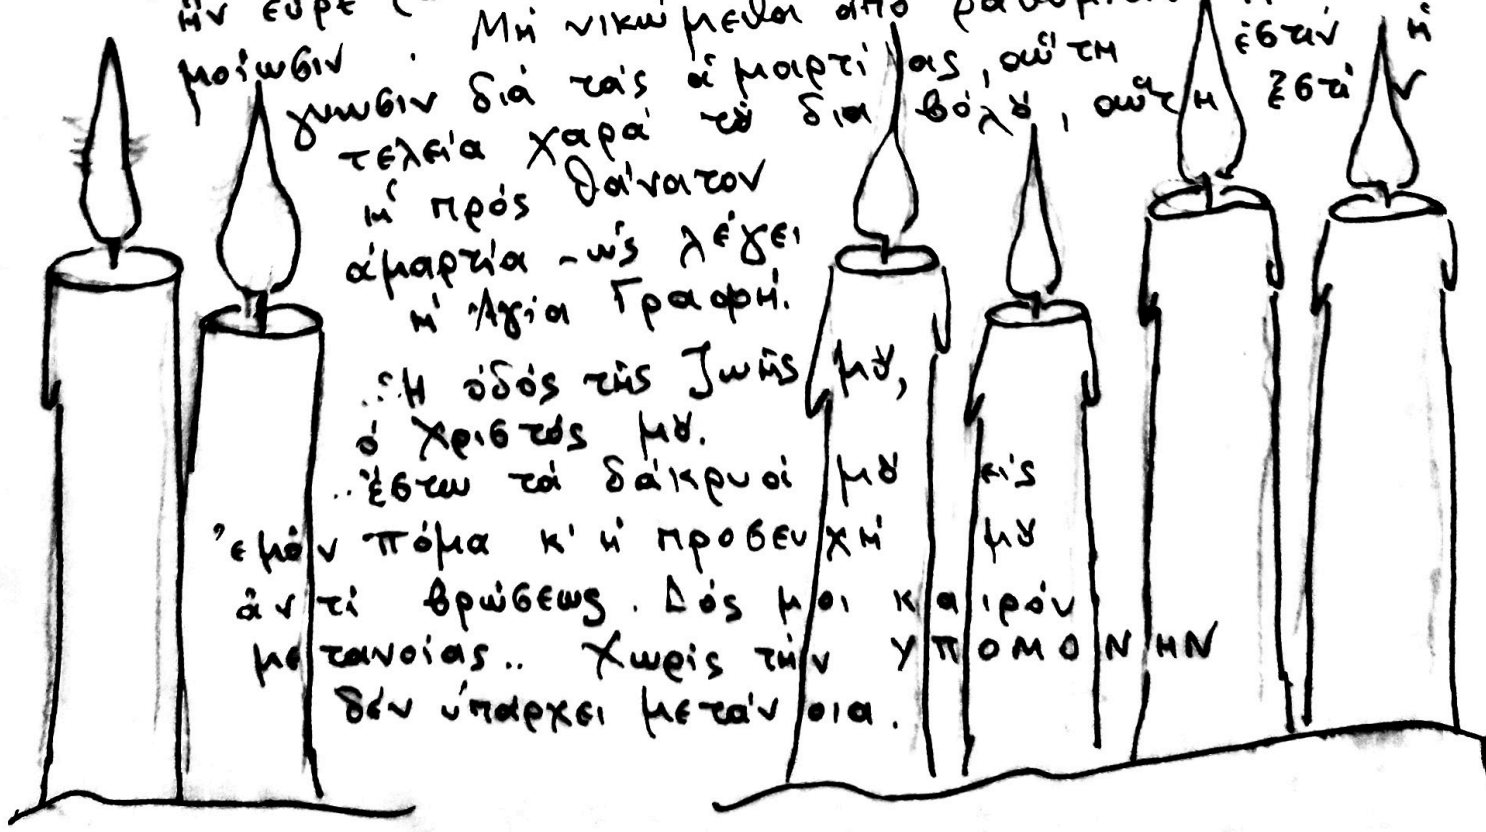 ἣν εὗρε
μοίωσιν . Μὴ νικώμεθα ἀπό
γνωσιν διά τάς ἁμαρτίας, αὕτη ἐστίν ἡ
τελεία χαρά τȣ διαβόλȣ, αὕτη ἐστίν
ἡ πρός θάνατον
ἁμαρτία - ὡς λέγει
ἡ Ἁγία Γραφή.
..Ἡ ὁδός τῆς ζωῆς μȣ,
ὁ Χριστός μȣ.
..Ἔστω τά δάκρυά μȣ εἰς
ἐμόν πόμα κ' ἡ προσευχή μȣ
ἀντί βρώσεως. Δός μοι καιρόν
μετανοίας.. Χωρίς τήν ΥΠΟΜΟΝΗΝ
δέν ὑπάρχει μετάνοια.